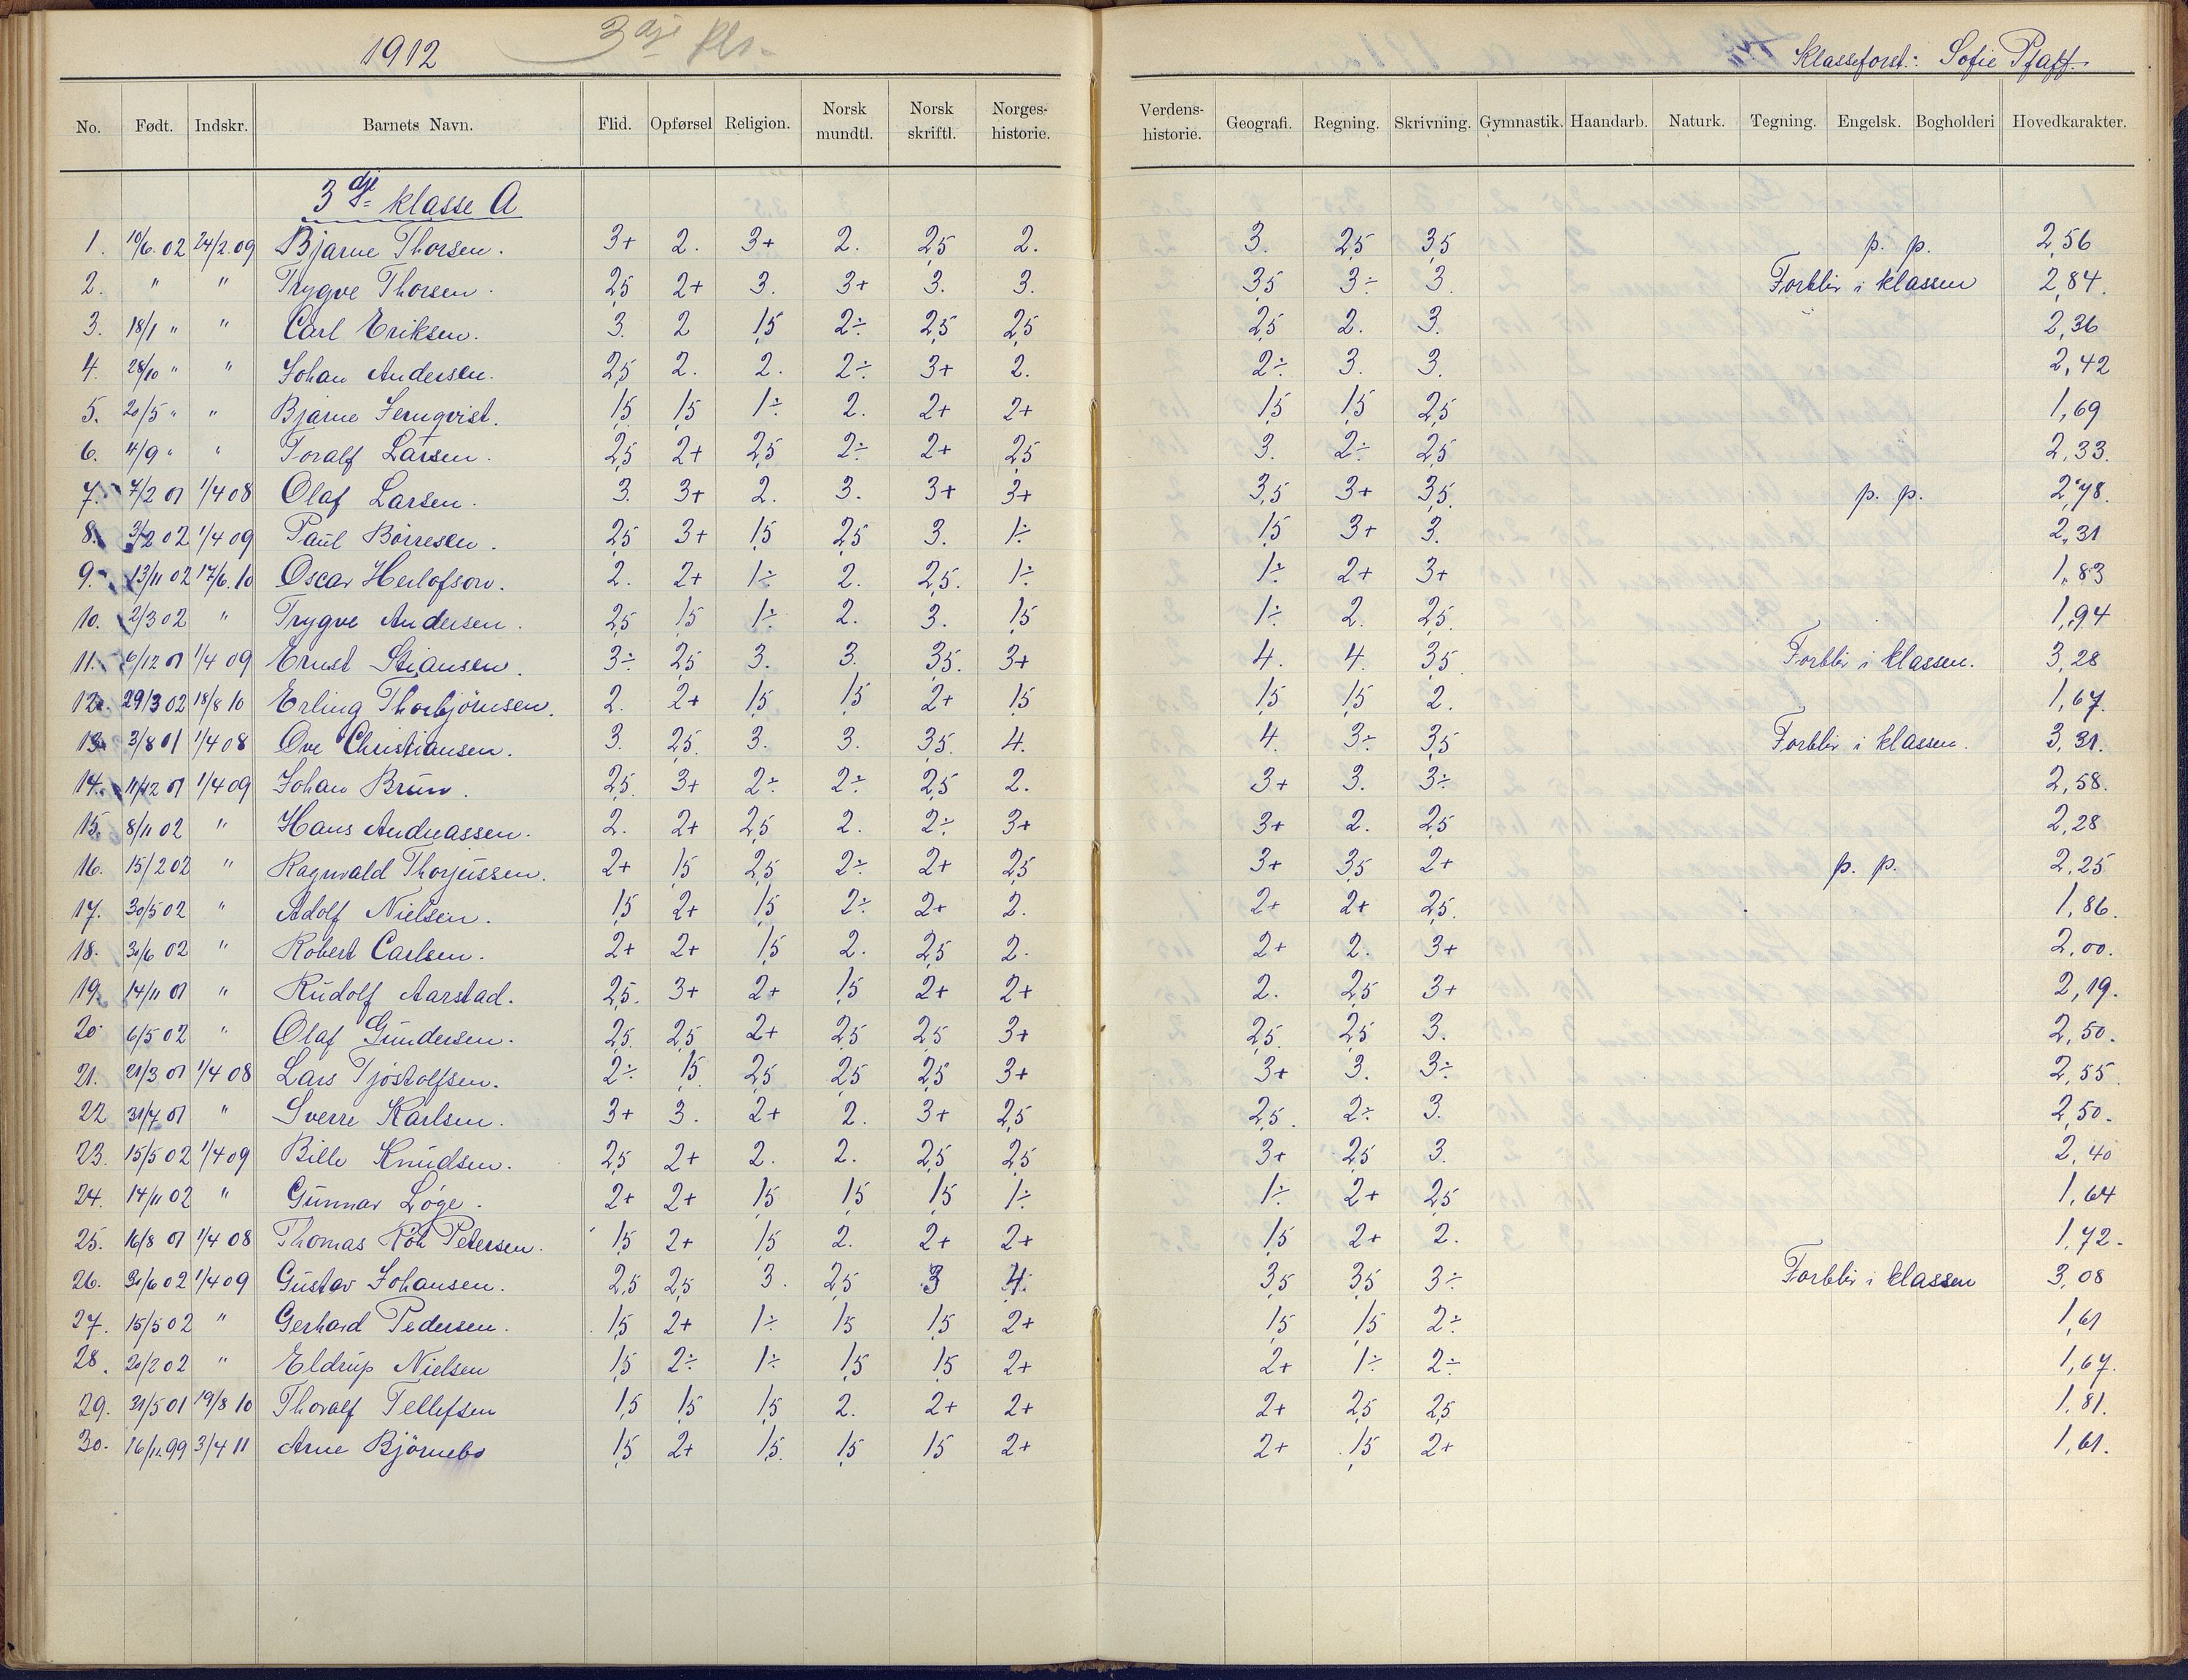 1912 3dje Kls. Klasseforst.: Sofie Pfaff.
No. Født. Indskr. Barnets Navn. Flid. Opførsel Religion. Norsk mundtl. Norsk skriftl. Norges-historie. Verdens-historie. Geografi. Regning. Skrivning. Gymnastik. Haandarb. Naturk. Tegning. Engelsk. Bogholderi Hovedkarakter.
3dje klasse A
1. 10/6. 02 24/2.09 Bjarne Thorsen. 3+ 2. 3+ 2. 2,5 2. 3. 2,5 3,5 p. p. 2,56
2. " " Trygve Thorsen. 2,5 2+ 3. 3+ 3. 3. 3,5 3÷ 3. Forblir i klassen 2,84.
3. 18/1 " " Carl Eriksen. 3. 2 1,5 2÷ 2,5 2,5 2,5 2. 3. 2,36
4. 28/10 " " Johan Andersen. 2,5 2. 2. 2÷ 3+ 2. 2÷ 3. 3. 2,42
5. 20/5 " " Bjarne Jernqvist. 1,5 1,5 1÷ 2. 2+ 2+ 1,5 1,5 2,5 1,69
6. 4/9 " " Toralf Larsen. 2,5 2+ 2,5 2÷ 2+ 2,5 3. 2÷ 2,5 2,33.
7. 7/2 01 1/4 08 Olaf Larsen. 3. 3+ 2. 3. 3+ 3+ 3,5 3+ 3,5. p. p. 2,78.
8. 3/2 02 1/4 09 Paul Børresen. 2,5 3+ 1,5 2,5 3. 1÷ 1,5 3+ 3. 2,31
9. 13/11 02 17/6. 10 Oscar Herlofson. 2. 2+ 1÷ 2. 2,5. 1÷ 1÷ 2+ 3+ 1,83
10. 2/3 02 " Trygve Andersen. 2,5 1,5 1÷ 2. 3. 1,5 1÷ 2. 2,5. 1,94
11. 6/12 01 1/4 09 Ernst Stiansen. 3÷ 2,5 3. 3. 3,5. 3+ 4. 4. 3,5 Forblir i klassen. 3,28
12. 29/3 02 18/8 10 Erling Thorbjörnsen. 2. 2+ 1,5 1,5 2+ 1,5 1,5 1,5 2. 1,67.
13. 3/8 01 1/4 08 Ove Christiansen. 3. 2,5. 3. 3. 3,5. 4. 4. 3÷ 3,5 Forblir i klassen. 3,31.
14. 11/12 01 1/4 09 Johan Brun. 2,5. 3+ 2÷ 2÷ 2,5 2. 3+ 3. 3÷ 2,58.
15. 8/11 02 " Hans Andreassen. 2. 2+ 2,5 2. 2÷ 3+ 3+ 2. 2,5 2,28
16. 15/2 02 " Ragnvald Thorjussen. 2+ 1,5 2,5 2÷ 2+ 2,5 3+ 3,5 2+ p. p. 2,25
17. 30/5 02 " Adolf Nielsen. 1,5 2+ 1,5 2÷ 2+ 2. 2+ 2+ 2,5. 1,86.
18. 30/6 02 " Robert Carlsen. 2+ 2+ 1,5 2. 2,5 2. 2+ 2. 3+ 2,00.
19. 14/11 01 " Rudolf Aarstad. 2,5. 3+ 2+ 1,5 2+ 2+ 2. 2,5 3+ 2,19.
20 6/5 02 " Olaf Gundersen. 2,5. 2,5 2+ 2,5 2,5 3+ 2,5 2,5 3. 2,50.
21. 21/3 01 1/4 08 Lars Tjöstolfsen. 2÷ 1,5 2,5 2,5 2,5 3+ 3+ 3. 3÷ 2,55
22 31/7 01 " Sverre Karlsen. 3+ 3. 2+ 2. 3+ 2,5 2,5. 2÷ 3. 2,50.
23. 15/5 02 1/4 09 Bille Knudsen. 2,5 2+ 2. 2. 2,5 2,5 3+ 2,5 3. 2,40
24. 14/11 02 " Gunnar Løge. 2+ 2+ 1,5 1,5 1,5 1÷ 1÷ 2+ 2,5 1,64
25. 16/8 01 1/4 08 Thomas Petersen. 1,5 2+ 1,5 2. 2+ 2+ 1,5 2+ 2. 1,72.
26. 30/6 02 1/4 09 Gustav Johansen. 2,5 2,5 3. 2,5 3 4. 3,5 3,5 3÷ Forblir i klassen 3,08
27. 15/5 02 " Gerhard Pedersen. 1,5 2+ 1÷ 1,5 1,5 2+ 1,5 1,5 2÷ 1,61
28. 20/2 02 " Eldrup Nielsen 1,5 2÷ 1÷ 1,5 1,5 2+ 2+ 1÷ 2÷ 1,67.
29. 31/5 01 19/8 10 Thoralf Tellefsen 1,5 1,5 1,5 2. 2+ 2+ 2+ 2,5 2,5 1,81.
30. 16/11 99 3/4 11 Arne Björnebo 1,5 2+ 1,5. 1,5 1,5 2+ 2+ 1,5 2+ 1,61.